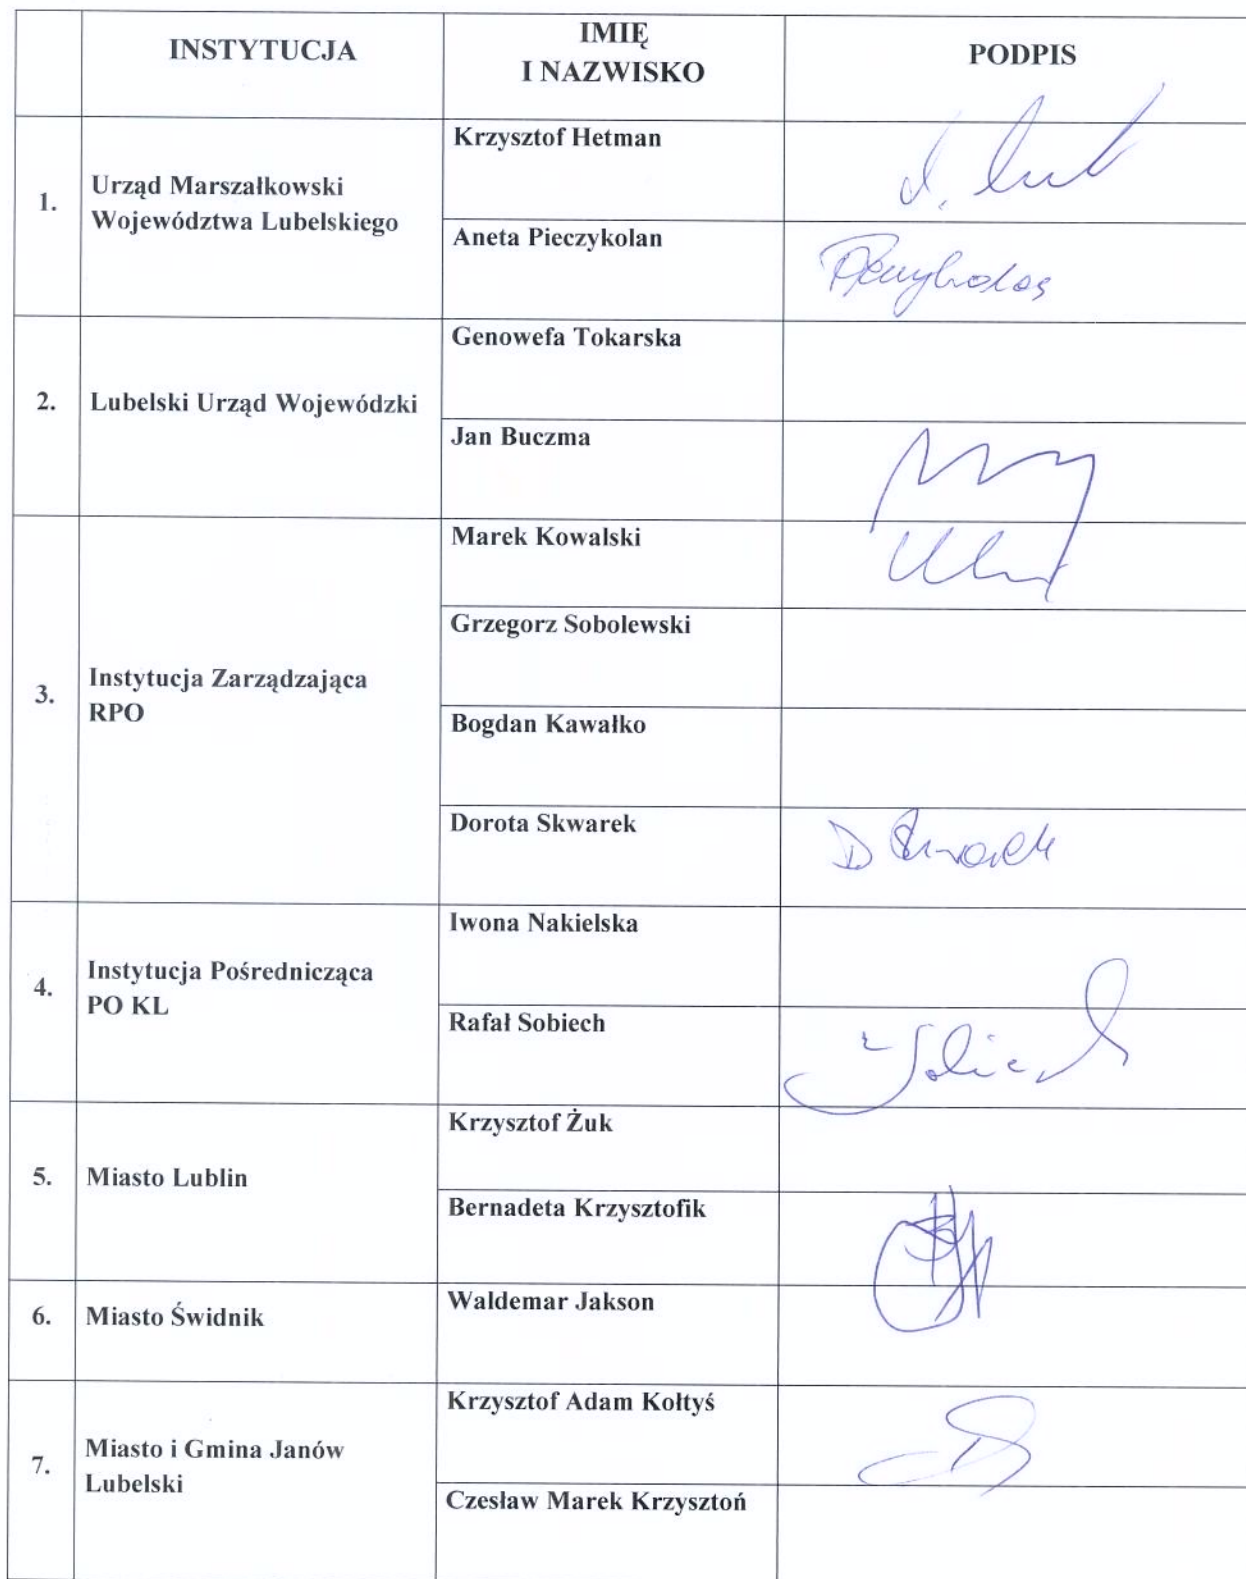 INSTYTUCJA
IMIĘ
I NAZWISKO
PODPIS
1.
Urząd Marszałkowski
Województwa Lubelskiego
Krzysztof Hetman
Aneta Pieczykolan
2.
Lubelski Urząd Wojewódzki
Genowefa Tokarska
Jan Buczma
3.
Instytucja Zarządzająca
RPO
Marek Kowalski
Grzegorz Sobolewski
Bogdan Kawałko
Dorota Skwarek
D Skwarek
4.
Instytucja Pośrednicząca
PO KL
Iwona Nakielska
Rafał Sobiech
5.
Miasto Lublin
Krzysztof Żuk
Bernadeta Krzysztofik
6.
Miasto Świdnik
Waldemar Jakson
7.
Miasto i Gmina Janów
Lubelski
Krzysztof Adam Kołtyś
Czesław Marek Krzysztoń